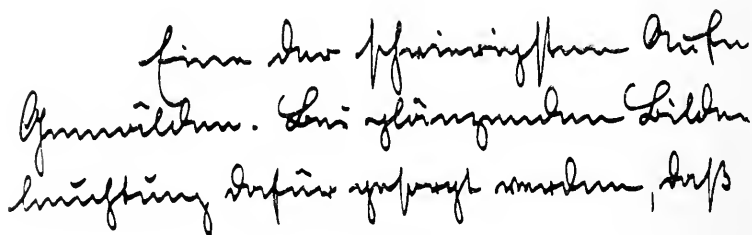 Eine der schwierigsten Aufn
Gemälden. Bei glänzenden Bilder
leuchtung dafür gesorgt werden, daß